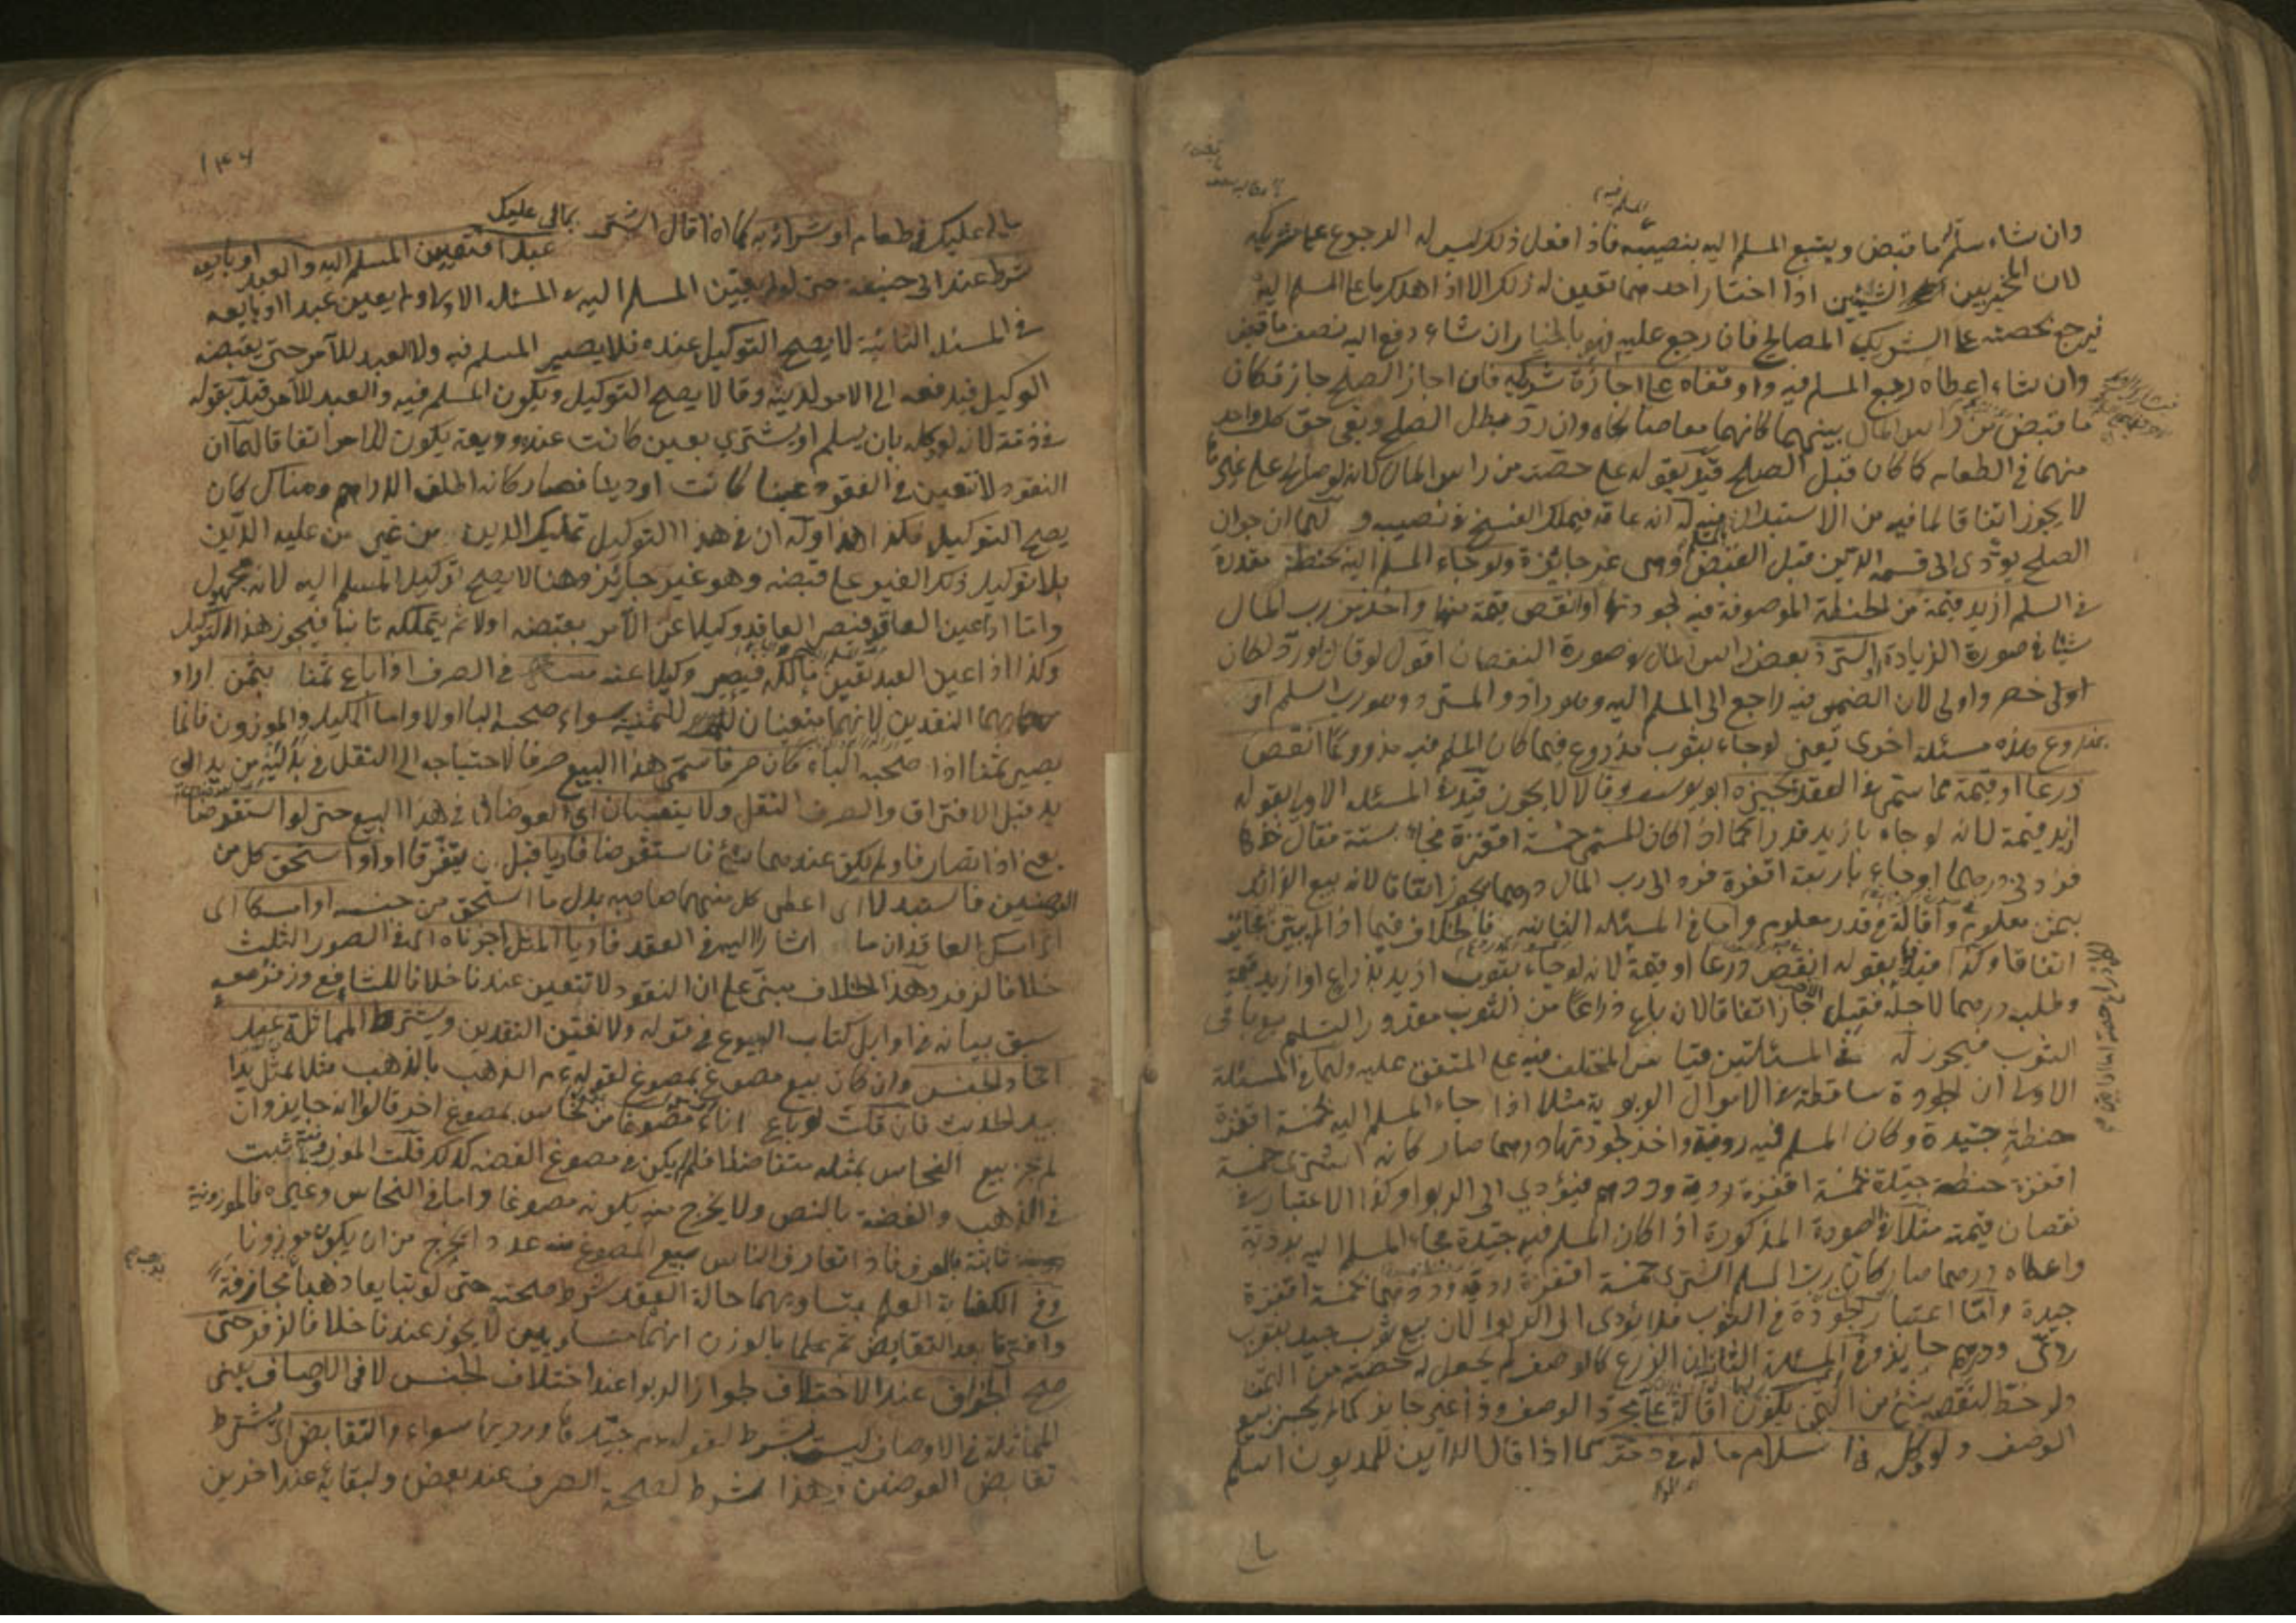 وان شاء سلم له ما قبض ويتبع المسلم اليه بنصيبه فاذا فعل ذلك ليس له الرجوع على شريكه
لان المخير بين الشيئين اذا اختار احدهما تعين له ذلك الا اذا هلك ما على المسلم اليه
فيرجع بحصته على الشريك المصالح فان رجع عليه فهو بالخيار ان شاء دفع اليه نصف ما قبض
وان شاء اعطاه ربع المسلم فيه واوقفاه على اجازة شريكه فان اجاز الصلح جاز فكان
ما قبض من راس المال بينهما كانهما وان رد بطل الصلح وبقى حق كل واحد
منهما في الطعام كما كان قبل الصلح قيد بقوله على حصته من راس المال لانه لو صالح على غيره
لا يجوز اتفاقا لما فيه من الاستبدال له انه عاقد فيملك الفسخ في نصيبه ولهما ان جواز
الصلح يؤدى الى قسمة الدين قبل القبض وهى غير جائزة ولو جاء المسلم اليه بحنطة مقدرة
في السلم ازيد قيمة من الحنطة الموصوفة فيه لجودتها او انقص قيمة منها واخذ من رب المال
شيئا في صورة الزيادة او استرد بعض راس المال في صورة النقصان اقول لو قال لو رد لكان
اولى خصر واولى لان الضمير فيه راجع الى المسلم اليه وهو راد والمسترد هو رب السلم او
بمذروع هذه مسئلة اخرى يعنى لو جاء بثوب مذروع فيما كان المسلم فيه مذروعا انقص
ذرعا او قيمة مما سمى في العقد يجيزه ابو يوسف وقالا لا يجوز قيد في المسئلة الاولى بقوله
ازيد قيمة لانه لو جاء بازيد قدرا كما اذا كان المسمى خمسة اقفزة فجاء بستة فقال خذها
فزدنى درهما او جاء باربعة اقفزة فرد الى رب المال درهما يجوز اتفاقا لانه بيع الزائد
بثمن معلوم واقالة في قدر معلوم واما في المسئلة الثانية فالخلاف فيما اذا لم يبين
اتفاقا وكذا قيد بقوله انقص ذرعا او قيمة لانه لو جاء بثوب ازيد بذراع او ازيد قيمة
وطلب درهما لاجله فقبل جاز اتفاقا لان بايع ذراعا من الثوب مقدور التسليم مع باقى
الثوب فيجوز له في المسئلتين قياس المختلف فيه على المتفق عليه ولهما في المسئلة
الاولى ان الجودة ساقطة في الاموال الربوية مثلا اذا جاء المسلم اليه خمسة اقفزة
حنطة جيدة وكان المسلم فيه ردية واخذ لجودتها درهما صار كانه اشترى خمسة
اقفزة حنطة جيدة بخمسة اقفزة ردية ودرهم فيؤدي الى الربوا وكذا الاعتبار في
نقصان قيمته مثلا في الصورة المذكورة اذا كان المسلم فيه جيدة فجاء المسلم اليه بردية
واعطاه درهما صار كان رب السلم اشترى خمسة اقفزة ردية ودرهما بخمسة اقفزة
جيدة واما اعتبار الجودة في الثوب فلا يؤدى الى الربوا لان بيع ثوب جيد بثوب
ردى ودرهم جايز وفى المسئلة الثانية ان الذرع كالوصف لم يجعل له حصة من الثمن
ولو حط لنقصه شئ من الثمن يكون اقالة على مجرد الوصف وذا غير جايز كما لم يجز بيع
الوصف ولو وكل في اسلام ماله في ذمته كما اذا قال الداين للمديون اسلم

١٣٦
مالى عليك في طعام او شرائه به كما اذا قال اشتر بمالى عليك
عبدا فتعيين المسلم اليه والعبد او بايعه
شرط عند ابى حنيفة حتى لو لم يعين المسلم اليه في المسئلة الاولى ولم يعين عبدا او بايعه
في المسئلة الثانية لا يصح التوكيل عنده فلا يصير المسلم فيه ولا العبد للآمر حتى يقبضه
الوكيل فيدفعه الى الآمر لدينه وقالا يصح التوكيل ويكون المسلم فيه والعبد للآمر قيد بقوله
في ذمته لانه لو وكله بان يسلم او يشترى بعين كانت عنده وديعة يكون للآمر اتفاقا لهما ان
النقود لا تتعين في العقود عينا كانت او دينا فصار كانه اطلق الدراهم وهناك كان
يصح التوكيل فكذا هذا وله ان في هذا التوكيل تمليك الدين من غير من عليه الدين
بلا توكيل ذلك الغير على قبضه وهو غير جائز وهنا لا يصح توكيل المسلم اليه لانه مجهول
واما اذا عين العاقد فيصير العاقد وكيلا عن الآمر بقبضه اولا ثم يتملكه ثانيا فيجوز هذا التوكيل
وكذا اذا عين العبد تعين مالكه فيصير وكيلا عنه في الصرف اذا باع ثمنا بثمن اراد
بهما النقدين لانهما متعينان للثمنية سواء صحبه الباء او لا واما المكيل والموزون فانما
يصير ثمنا اذا صحبه الباء كان صرفا سمى هذا البيع صرفا لاحتياجه الى النقل في بدليه من يد الى
يد قبل الافتراق والصرف النقل ولا يتعينان اى العوضان في هذا البيع حتى لو استقرضا
يعنى اذا تصارفا ولم يكن عندهما شئ فاستقرضا فاديا قبل ان يتفرقا او اذا استحق كل من
العوضين فاستبدلا اى اعطى كل منهما صاحبه بدل ما استحق من جنسه او امسكا اى
امسك العاقدان ما اشارا اليه في العقد فاديا المثل اجزناه اى في الصور الثلث
خلافا لزفر وهذا الخلاف مبنى على ان النقود لا تتعين عندنا خلافا للشافعى وزفر معه
سبق بيانه في اوايل كتاب البيوع في قوله ولا نعين النقدين ويشترط المماثلة عند
اتحاد الجنس وان كان بيع مصوغ بمصوغ لقوله عم الذهب بالذهب مثلا بمثل يدا
بيد الحديث فان قلت لو باع اناء مصوغا من نحاس بمصوغ اخر قالوا انه جايز وان
لم يجز بيع النحاس بمثله متفاضلا فلم لم يكن في مصوغ الفضة كذلك قلت الموزونية ثبت
في الذهب والفضة بالنص ولا يخرج منه بكونه مصوغا واما في النحاس وغيره فالموزونية
ثابتة بالعرف فاذا تعارف الناس بيع المصوغ منه عددا يخرج من ان يكون موزونا
وفى الكفاية العلم بتساويهما حالة العقد شرط صحته حتى لو تبايعا ذهبا مجازفة
وافترقا بعد التقابض ثم علما بالوزن انهما متساويين لا يجوز عندنا خلافا لزفر حتى
صح الجزاف عند الاختلاف لجواز الربوا عند اختلاف الجنس لا في الاوصاف يعنى
المماثلة في الاوصاف ليست بشرط لقوله عم جيدها ورديها سواء والتقابض اى يشترط
تقابض العوضين وهذا شرط لصحة الصرف عند بعض ولبقائه عند اخرين